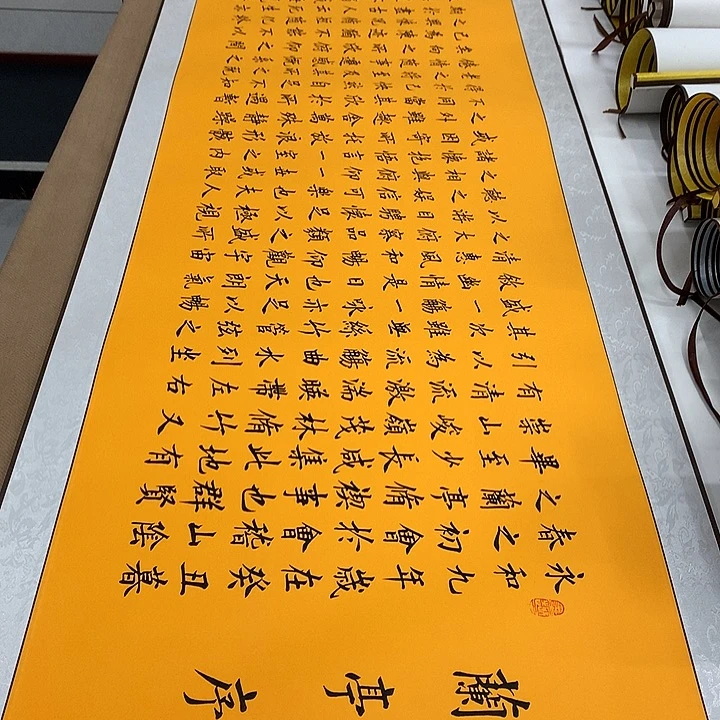 蘭亭序
永和九年歲在癸丑暮
春之初會於會稽山陰
之蘭亭脩稧事也群賢
畢至少長咸集此地有
崇山峻嶺茂林脩竹又
有清流激湍暎帶左右
引以為流觴曲水列坐
其次雖無絲竹管弦之
盛一觴一詠亦足以暢
敘幽情是日也天朗氣
清惠風和暢仰觀宇宙
之大俯察品類之盛所
以遊目騁懷足以極視
聽之娛信可樂也夫人
之相與俯仰一世或取
諸懷抱悟言一室之內
或因寄所托放浪形骸
之外雖趣舍萬殊靜躁
不同當其欣於所遇暫